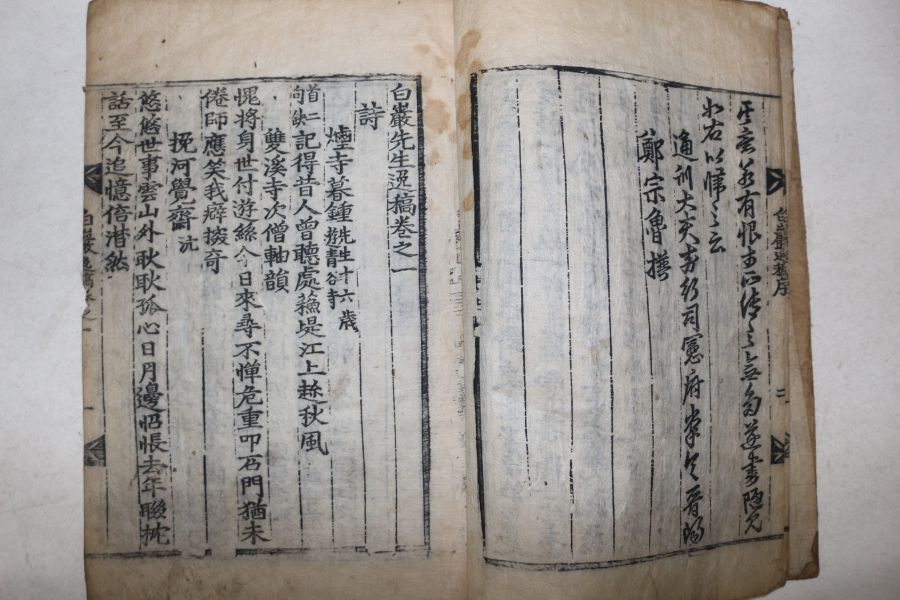 有恨
右以歸之云
通訓大夫前行司憲府掌令晉陽
鄭宗魯撰
白巖先生逸稿序
二
白巖先生逸稿卷之一
詩
煙寺暮鍾 先生十六歲
首二句缺 記得昔人曾聽處 蘓堤江上趂秋風
雙溪寺次僧軸韻
愧將身世付游絲今日來尋不憚危重叩石門猶未
倦師應笑我癖搜奇
挽河覺齋 沆
悠悠世事雲山外耿耿孤心日月邊怊悵去年聯枕
話至今追憶倍潸然
白巖逸稿卷之一
一